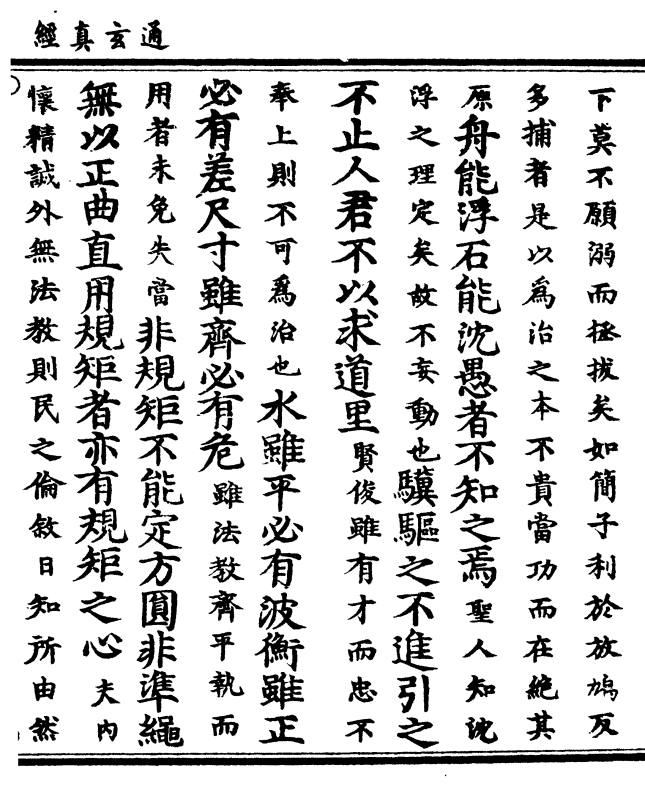 通玄真經
下莫不願溺而拯拔矣如簡子利於放鳩反
多捕者是以為治之本不貴當功而在絕其
原舟能浮石能沈愚者不知之焉聖人知沈
浮之理定矣故不妄動也驥驅之不進引之
不止人君不以求道里賢俊雖有才而忠不
奉上則不可為治也水雖平必有波衡雖正
必有差尺寸雖齊必有危雖法教齊平執而
用者未免失當非規矩不能定方圓非準繩
無以正曲直用規矩者亦有規矩之心夫內
懷精誠外無法教則民之倫敘日知所由然